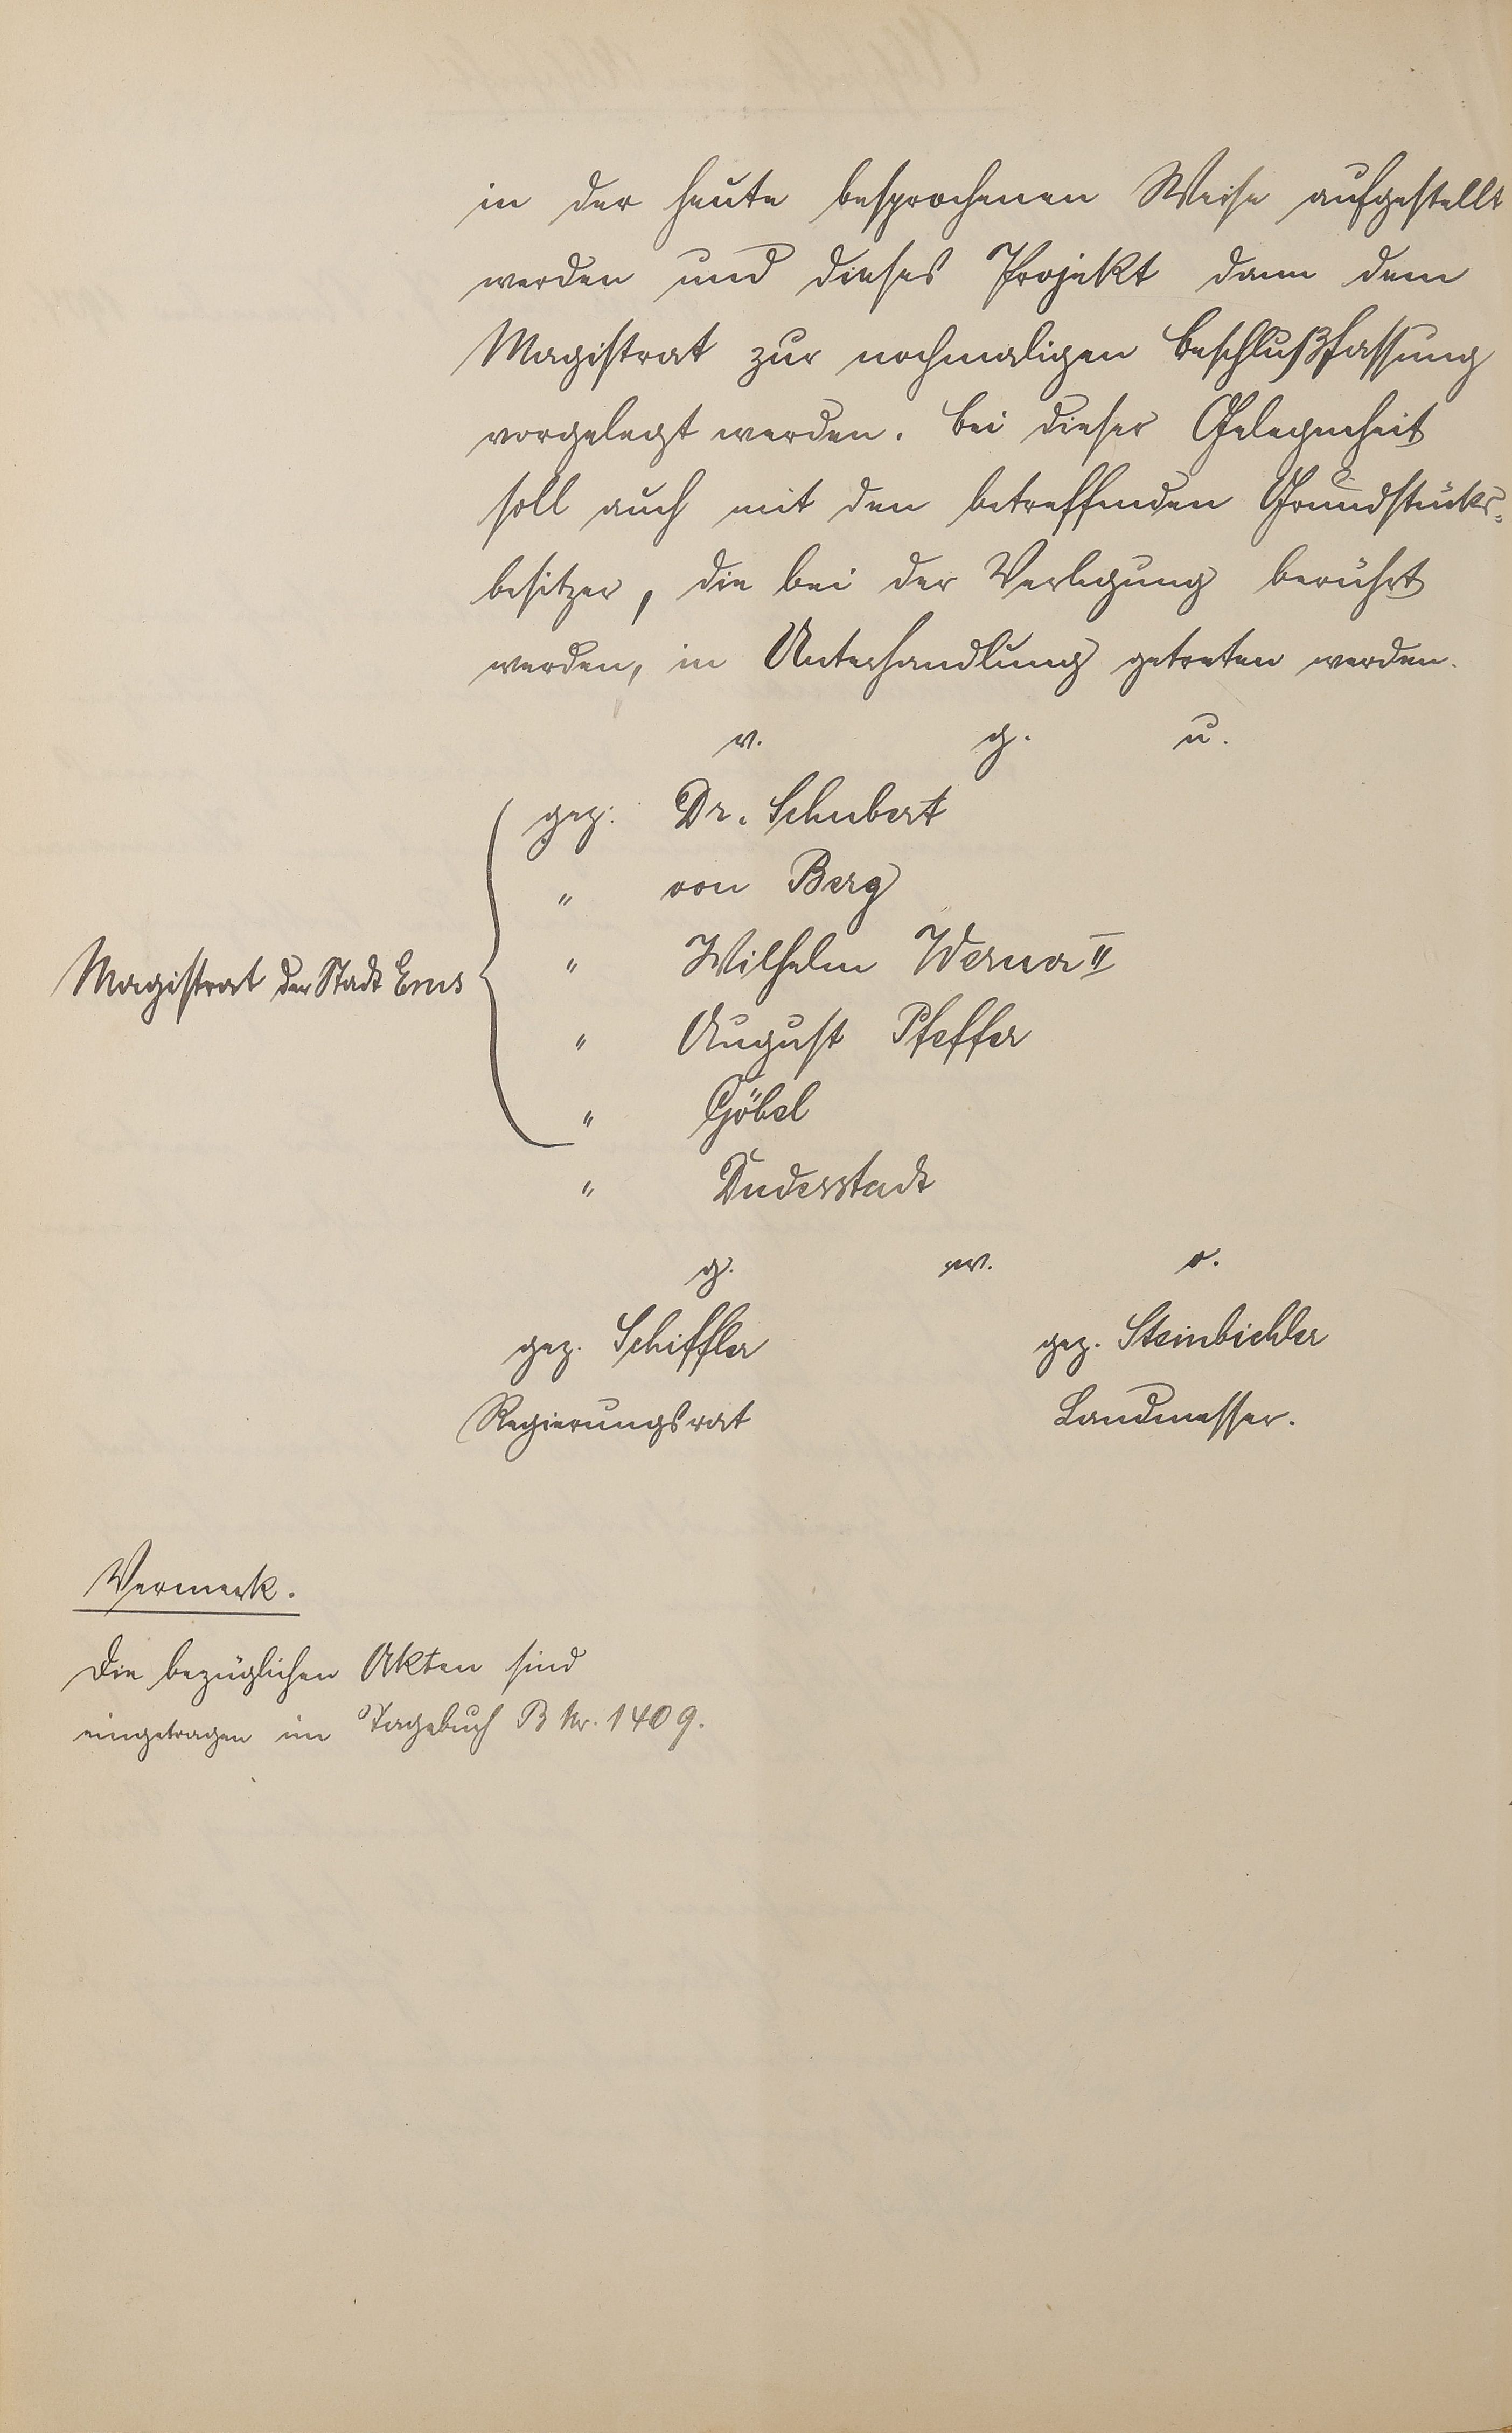 in der heute besprochenen Weise aufgestellt
werden und dieses Projekt dann dem
Magistrat zur nochmaligen Beschlußfassung
vorgelegt werden. Bei dieser Gelegenheit
soll auch mit den betreffenden Grundstücks-
besitzer, die bei der Verlegung berührt
werden, in Unterhandlung getreten werden.
v. g. u.
gez: Dr. Schubert
" von Berg
" Wilhelm Werner II
Magistrat der Stadt Ems
" August Pfeffer
" Göbel
" Duderstadt
g. w. o.
gez. Schiffler gez. Steinbichler
Regierungsrat Landmesser.
Vermerk.
Die bezüglichen Akten sind
eingetragen im Tagebuch B Nr. 1409.